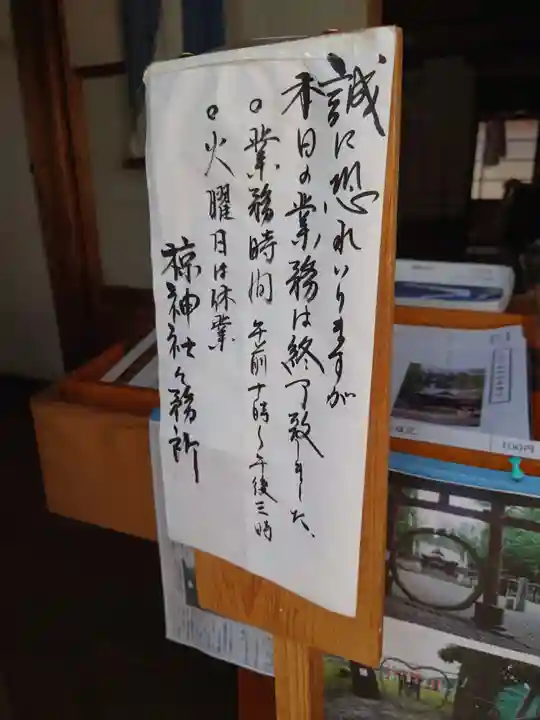 誠に恐れいりますが
本日の業務は終了致しました、
○業務時間 午前十時〜午後三時
○火曜日は休業
椋神社々務所
100円